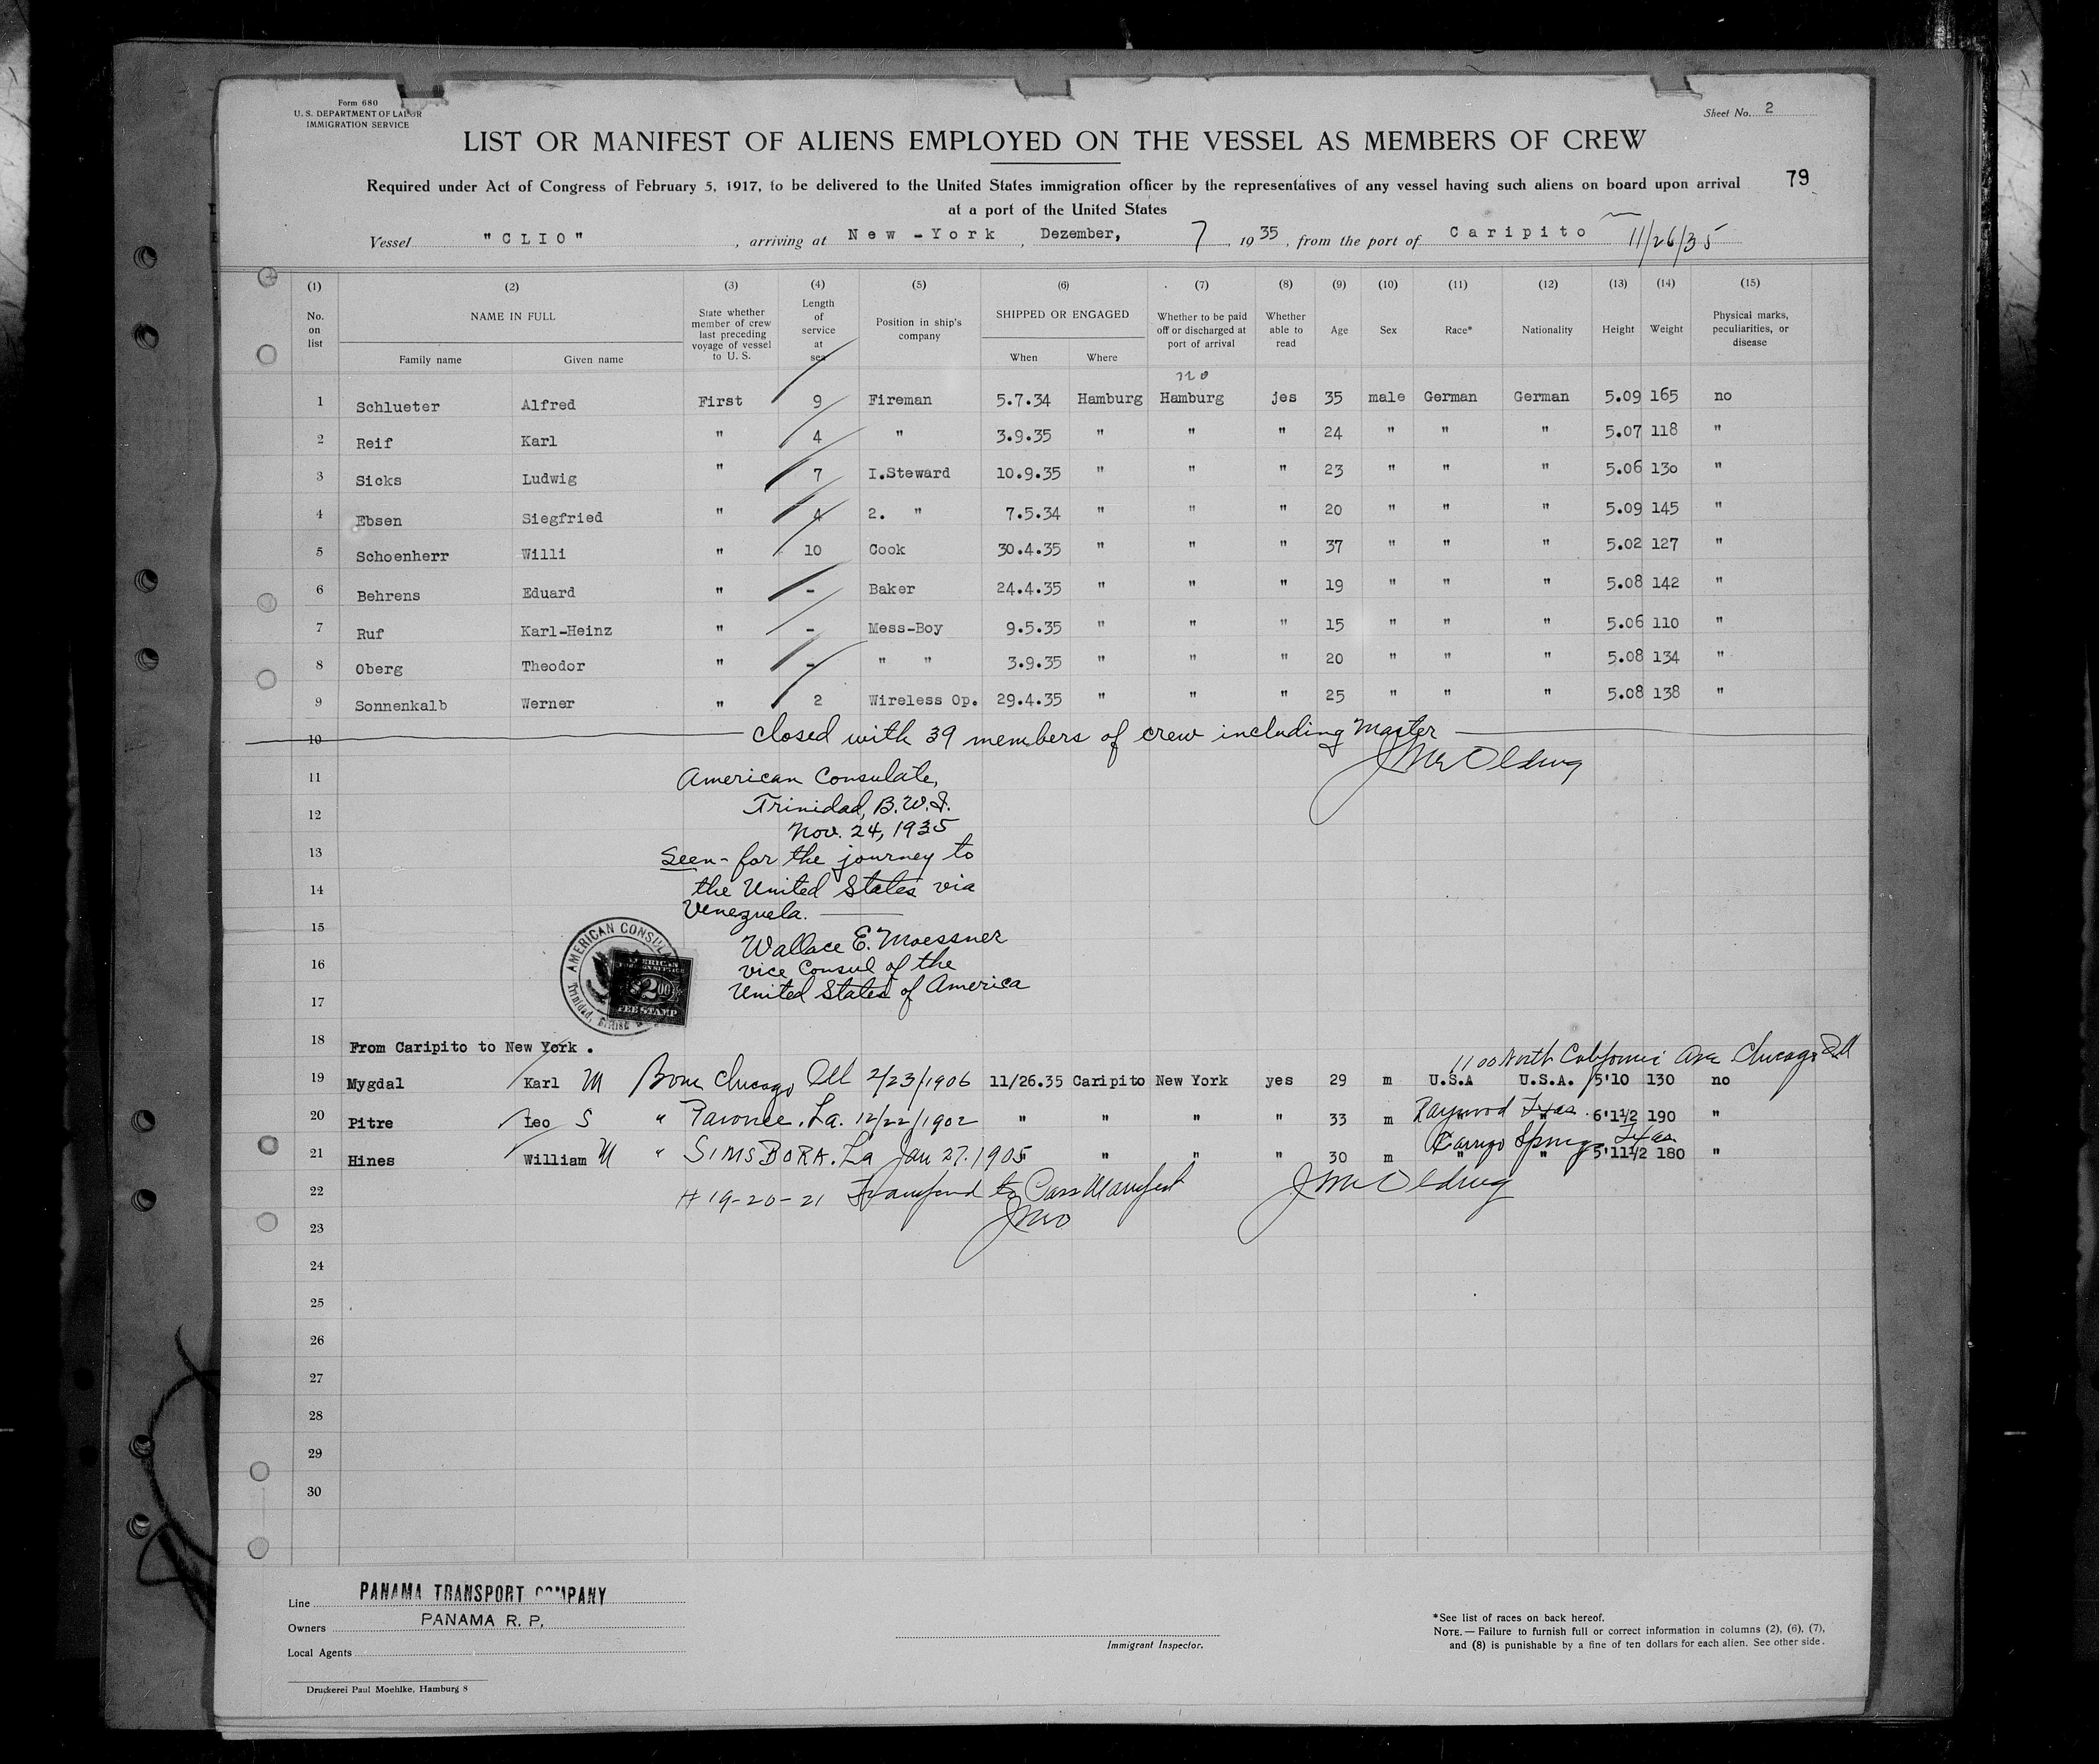 Form 680
U. S. DEPARTMENT OF LABOR
IMMIGRATION SERVICE
Sheet No. 2
LIST OR MANIFEST OF ALIENS EMPLOYED ON THE VESSEL AS MEMBERS OF CREW
Required under Act of Congress of February 5, 1917, to be delivered to the United States immigration officer by the representatives of any vessel having such aliens on board upon arrival
79
at a port of the United States
Vessel "CLIO", arriving at New-York, Dezember, 7, 1935, from the port of Caripito 11/26/35
(1) (2) (3) (4) (5) (6) (7) (8) (9) (10) (11) (12) (13) (14) (15)
No. on list NAME IN FULL Family name Given name State whether member of crew last preceding voyage of vessel to U. S. Length of service at sea Position in ship's company SHIPPED OR ENGAGED When Where Whether to be paid off or discharged at port of arrival Whether able to read Age Sex Race* Nationality Height Weight Physical marks, peculiarities, or disease
no
1 Schlueter Alfred First 9 Fireman 5.7.34 Hamburg Hamburg jes 35 male German German 5.09 165 no
2 Reif Karl " 4 " 3.9.35 " " " 24 " " " 5.07 118 "
3 Sicks Ludwig " 7 I.Steward 10.9.35 " " " 23 " " " 5.06 130 "
4 Ebsen Siegfried " 4 2. " 7.5.34 " " " 20 " " " 5.09 145 "
5 Schoenherr Willi " 10 Cook 30.4.35 " " " 37 " " " 5.02 127 "
6 Behrens Eduard " - Baker 24.4.35 " " " 19 " " " 5.08 142 "
7 Ruf Karl-Heinz " - Mess-Boy 9.5.35 " " " 15 " " " 5.06 110 "
8 Oberg Theodor " - " " 3.9.35 " " " 20 " " " 5.08 134 "
9 Sonnenkalb Werner " 2 Wireless Op. 29.4.35 " " " 25 " " " 5.08 138 "
10 closed with 39 members of crew including Master
11 American Consulate,
12 Trinidad, B.W.I.
Nov. 24, 1935
13 Seen- for the journey to
14 the United States via
Venezuela.
15
Wallace E. Moessner
16 vice Consul of the
United States of America
17
AMERICAN CONSUL
Trinidad, British
AMERICAN
FOREIGN SERVICE
$2.00
FEE STAMP
18 From Caripito to New York.
1100 North California Ave Chicago Ill
19 Mygdal Karl M Born Chicago Ill 2/23/1906 11/26.35 Caripito New York yes 29 m U.S.A U.S.A. 5'10 130 no
20 Pitre Leo S " La. 12/22/1902 " " " " 33 m Raywood Texas 6'11/2 190 "
21 Hines William M " SIMSBORA. La Jan 27. 1905 " " " 30 m Carrizo Springs Texas 5'111/2 180 "
22 # 19-20-21 to Pass Manifest
23
24
25
26
27
28
29
30
Line PANAMA TRANSPORT COMPANY
Owners PANAMA R. P.
Local Agents
Immigrant Inspector.
*See list of races on back hereof.
NOTE.— Failure to furnish full or correct information in columns (2), (6), (7),
and (8) is punishable by a fine of ten dollars for each alien. See other side.
Druckerei Paul Moehlke, Hamburg 8